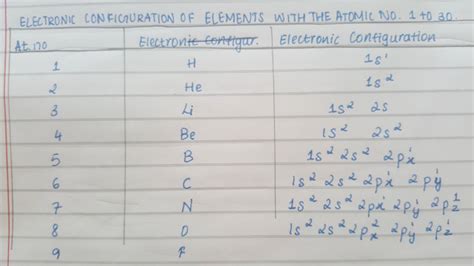 ELECTRONIC CONFIGURATION OF ELEMENTS WITH THE ATOMIC NO. 1 TO 30.
At. no Electronic Configur. Electronic Configuration
1 H 1s¹
2 He 1s²
3 Li 1s² 2s
4 Be 1s² 2s²
5 B 1s² 2s² 2px¹
6 C 1s² 2s² 2px¹ 2py¹
7 N 1s² 2s² 2px¹ 2py¹ 2pz¹
8 O 1s² 2s² 2px² 2py¹ 2pz¹
9 F